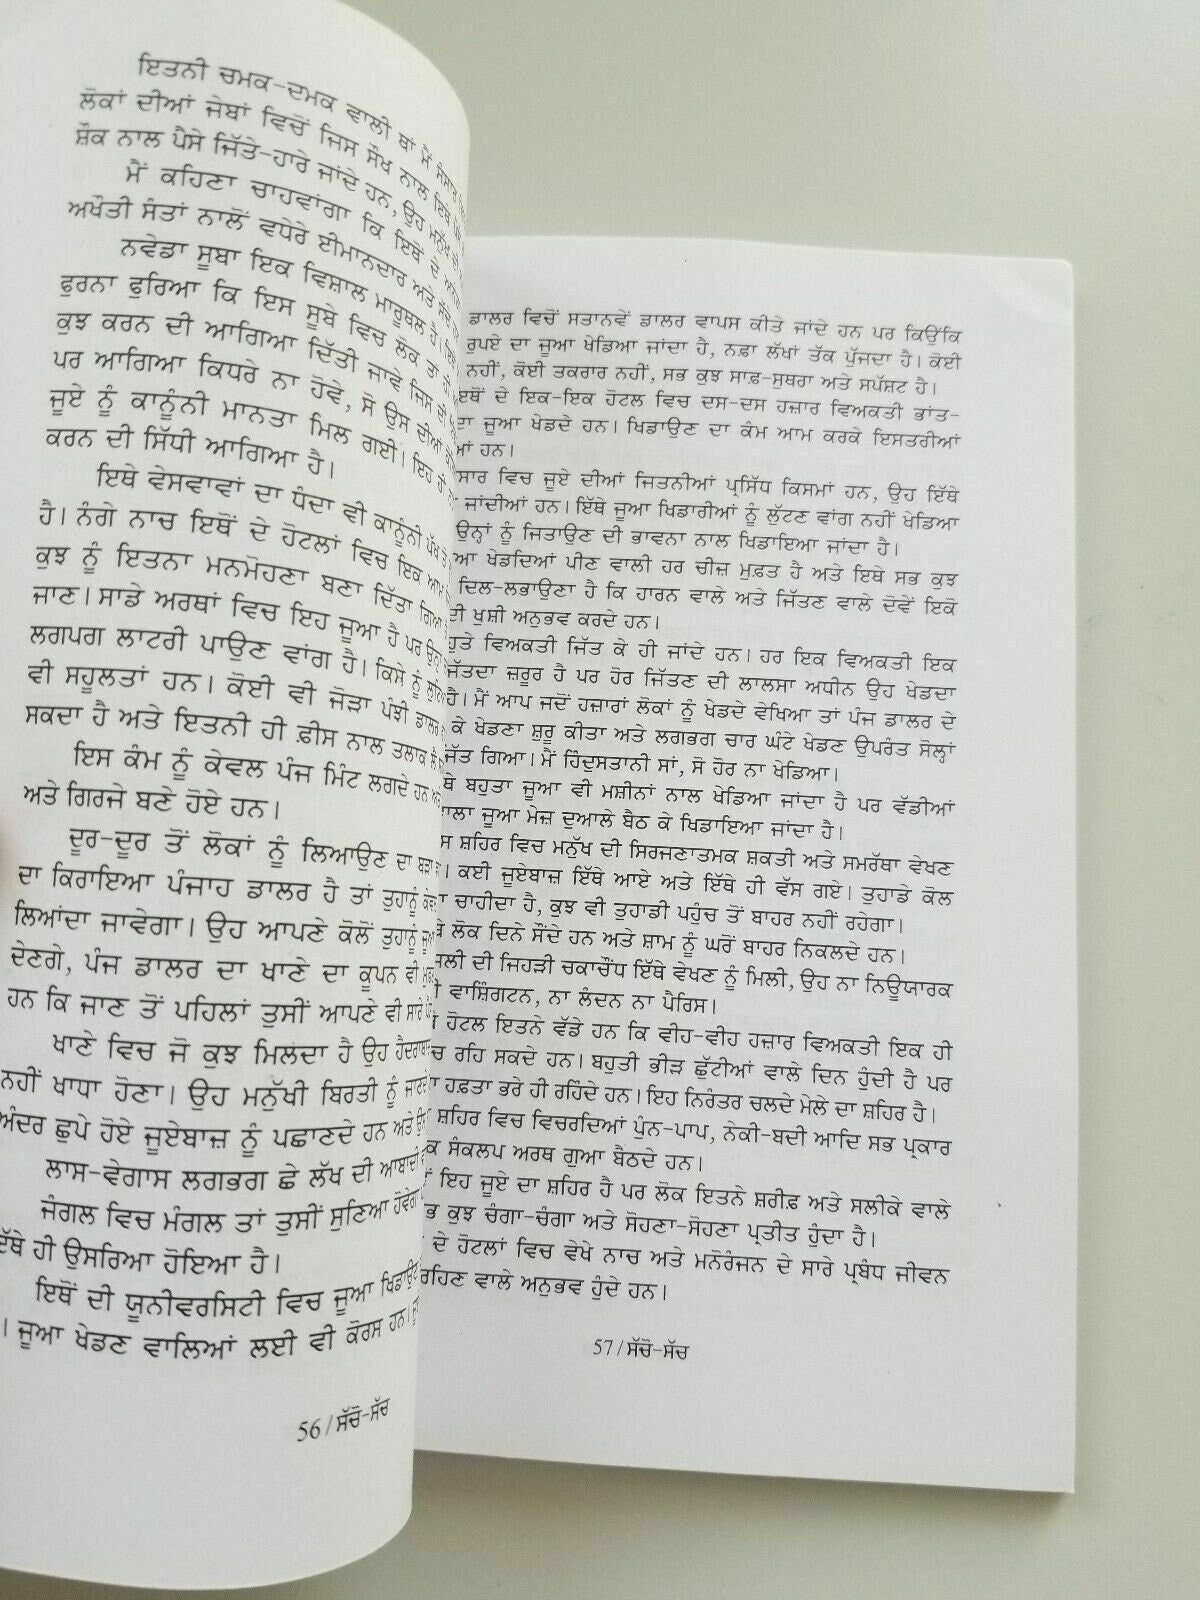 ਇਤਨੀ ਚਮਕ-ਦਮਕ ਵਾਲੀ ਥਾਂ ਮੈਂ ਸੰਸਾਰ
ਲੋਕਾਂ ਦੀਆਂ ਜੇਬਾਂ ਵਿਚੋਂ ਜਿਸ ਸੌਖ ਨਾਲ ਇਥੇ
ਸ਼ੌਕ ਨਾਲ ਪੈਸੇ ਜਿੱਤੇ-ਹਾਰੇ ਜਾਂਦੇ ਹਨ, ਉਹ ਮਨੁੱਖ ਦੀ
ਮੈਂ ਕਹਿਣਾ ਚਾਹਵਾਂਗਾ ਕਿ ਇਥੋਂ ਦੇ
ਅਖੌਤੀ ਸੰਤਾਂ ਨਾਲੋਂ ਵਧੇਰੇ ਈਮਾਨਦਾਰ ਅਤੇ ਸੱਚੇ
ਨਵੇਡਾ ਸੂਬਾ ਇਕ ਵਿਸ਼ਾਲ ਮਾਰੂਥਲ ਹੈ।
ਫੁਰਨਾ ਫੁਰਿਆ ਕਿ ਇਸ ਸੂਬੇ ਵਿਚ ਲੋਕ ਤਾਂ
ਕੁਝ ਕਰਨ ਦੀ ਆਗਿਆ ਦਿੱਤੀ ਜਾਵੇ ਜਿਸ ਦੀ
ਪਰ ਆਗਿਆ ਕਿਧਰੇ ਨਾ ਹੋਵੇ, ਸੋ ਉਸ ਦੀਆਂ
ਜੂਏ ਨੂੰ ਕਾਨੂੰਨੀ ਮਾਨਤਾ ਮਿਲ ਗਈ। ਇਹ ਹੀ
ਕਰਨ ਦੀ ਸਿੱਧੀ ਆਗਿਆ ਹੈ।
ਇਥੇ ਵੇਸਵਾਵਾਂ ਦਾ ਧੰਦਾ ਵੀ ਕਾਨੂੰਨੀ ਪੱਖ ਤੋਂ
ਹੈ। ਨੰਗੇ ਨਾਚ ਇਥੋਂ ਦੇ ਹੋਟਲਾਂ ਵਿਚ ਇਕ ਆਮ
ਕੁਝ ਨੂੰ ਇਤਨਾ ਮਨਮੋਹਣਾ ਬਣਾ ਦਿੱਤਾ ਗਿਆ
ਜਾਣ। ਸਾਡੇ ਅਰਥਾਂ ਵਿਚ ਇਹ ਜੂਆ ਹੈ ਪਰ ਉਨ੍ਹਾਂ
ਲਗਪਗ ਲਾਟਰੀ ਪਾਉਣ ਵਾਂਗ ਹੈ। ਕਿਸੇ ਨੂੰ
ਵੀ ਸਹੂਲਤਾਂ ਹਨ। ਕੋਈ ਵੀ ਜੋੜਾ ਪੰਝੀ ਡਾਲਰ
ਸਕਦਾ ਹੈ ਅਤੇ ਇਤਨੀ ਹੀ ਫ਼ੀਸ ਨਾਲ ਤਲਾਕ ਲੈ
ਇਸ ਕੰਮ ਨੂੰ ਕੇਵਲ ਪੰਜ ਮਿੰਟ ਲਗਦੇ ਹਨ
ਅਤੇ ਗਿਰਜੇ ਬਣੇ ਹੋਏ ਹਨ।
ਦੂਰ-ਦੂਰ ਤੋਂ ਲੋਕਾਂ ਨੂੰ ਲਿਆਉਣ ਦਾ ਬੜਾ
ਦਾ ਕਿਰਾਇਆ ਪੰਜਾਹ ਡਾਲਰ ਹੈ ਤਾਂ ਤੁਹਾਨੂੰ
ਲਿਆਂਦਾ ਜਾਵੇਗਾ। ਉਹ ਆਪਣੇ ਕੋਲੋਂ ਤੁਹਾਨੂੰ
ਦੇਣਗੇ, ਪੰਜ ਡਾਲਰ ਦਾ ਖਾਣੇ ਦਾ ਕੂਪਨ ਵੀ
ਹਨ ਕਿ ਜਾਣ ਤੋਂ ਪਹਿਲਾਂ ਤੁਸੀਂ ਆਪਣੇ ਵੀ ਸਾਰੇ
ਖਾਣੇ ਵਿਚ ਜੋ ਕੁਝ ਮਿਲਦਾ ਹੈ ਉਹ
ਨਹੀਂ ਖਾਧਾ ਹੋਣਾ। ਉਹ ਮਨੁੱਖੀ ਬਿਰਤੀ ਨੂੰ ਜਾਣਦੇ
ਅੰਦਰ ਛੁਪੇ ਹੋਏ ਜੂਏਬਾਜ਼ ਨੂੰ ਪਛਾਣਦੇ ਹਨ ਅਤੇ
ਲਾਸ-ਵੇਗਾਸ ਲਗਭਗ ਛੇ ਲੱਖ ਦੀ ਆਬਾਦੀ
ਜੰਗਲ ਵਿਚ ਮੰਗਲ ਤਾਂ ਤੁਸੀਂ ਸੁਣਿਆ ਹੋਵੇਗਾ
ਇੱਥੇ ਹੀ ਉਸਰਿਆ ਹੋਇਆ ਹੈ।
ਇਥੋਂ ਦੀ ਯੂਨੀਵਰਸਿਟੀ ਵਿਚ ਜੂਆ ਖਿਡਾਉਣ
। ਜੂਆ ਖੇਡਣ ਵਾਲਿਆਂ ਲਈ ਵੀ ਕੋਰਸ ਹਨ।
56/ਸੱਚੋ-ਸੱਚ
ਡਾਲਰ ਵਿਚੋਂ ਸਤਾਨਵੇਂ ਡਾਲਰ ਵਾਪਸ ਕੀਤੇ ਜਾਂਦੇ ਹਨ ਪਰ ਕਿਉਂਕਿ
ਰੁਪਏ ਦਾ ਜੂਆ ਖੇਡਿਆ ਜਾਂਦਾ ਹੈ, ਨਫ਼ਾ ਲੱਖਾਂ ਤੱਕ ਪੁੱਜਦਾ ਹੈ। ਕੋਈ
ਨਹੀਂ, ਕੋਈ ਤਕਰਾਰ ਨਹੀਂ, ਸਭ ਕੁਝ ਸਾਫ਼-ਸੁਥਰਾ ਅਤੇ ਸਪੱਸ਼ਟ ਹੈ।
ਦੇ ਇਕ-ਇਕ ਹੋਟਲ ਵਿਚ ਦਸ-ਦਸ ਹਜ਼ਾਰ ਵਿਅਕਤੀ ਭਾਂਤ-
ਦਾ ਜੂਆ ਖੇਡਦੇ ਹਨ। ਖਿਡਾਉਣ ਦਾ ਕੰਮ ਆਮ ਕਰਕੇ ਇਸਤਰੀਆਂ
ਹਨ।
ਸਾਰ ਵਿਚ ਜੂਏ ਦੀਆਂ ਜਿਤਨੀਆਂ ਪ੍ਰਸਿੱਧ ਕਿਸਮਾਂ ਹਨ, ਉਹ ਇੱਥੇ
ਜਾਂਦੀਆਂ ਹਨ। ਇੱਥੇ ਜੂਆ ਖਿਡਾਰੀਆਂ ਨੂੰ ਲੁੱਟਣ ਵਾਂਗ ਨਹੀਂ ਖੇਡਿਆ
ਉਨ੍ਹਾਂ ਨੂੰ ਜਿਤਾਉਣ ਦੀ ਭਾਵਨਾ ਨਾਲ ਖਿਡਾਇਆ ਜਾਂਦਾ ਹੈ।
ਆ ਖੇਡਦਿਆਂ ਪੀਣ ਵਾਲੀ ਹਰ ਚੀਜ਼ ਮੁਫ਼ਤ ਹੈ ਅਤੇ ਇਥੇ ਸਭ ਕੁਝ
ਦਿਲ-ਲਭਾਉਣਾ ਹੈ ਕਿ ਹਾਰਨ ਵਾਲੇ ਅਤੇ ਜਿੱਤਣ ਵਾਲੇ ਦੋਵੇਂ ਇਕੋ
ਦੀ ਖੁਸ਼ੀ ਅਨੁਭਵ ਕਰਦੇ ਹਨ।
ਹੁਤੇ ਵਿਅਕਤੀ ਜਿੱਤ ਕੇ ਹੀ ਜਾਂਦੇ ਹਨ। ਹਰ ਇਕ ਵਿਅਕਤੀ ਇਕ
ਜਿੱਤਦਾ ਜ਼ਰੂਰ ਹੈ ਪਰ ਹੋਰ ਜਿੱਤਣ ਦੀ ਲਾਲਸਾ ਅਧੀਨ ਉਹ ਖੇਡਦਾ
ਹੈ। ਮੈਂ ਆਪ ਜਦੋਂ ਹਜ਼ਾਰਾਂ ਲੋਕਾਂ ਨੂੰ ਖੇਡਦੇ ਵੇਖਿਆ ਤਾਂ ਪੰਜ ਡਾਲਰ ਦੇ
ਕੇ ਖੇਡਣਾ ਸ਼ੁਰੂ ਕੀਤਾ ਅਤੇ ਲਗਭਗ ਚਾਰ ਘੰਟੇ ਖੇਡਣ ਉਪਰੰਤ ਸੋਲ੍ਹਾਂ
ਜਿੱਤ ਗਿਆ। ਮੈਂ ਹਿੰਦੁਸਤਾਨੀ ਸਾਂ, ਸੋ ਹੋਰ ਨਾ ਖੇਡਿਆ।
ਥੇ ਬਹੁਤਾ ਜੂਆ ਵੀ ਮਸ਼ੀਨਾਂ ਨਾਲ ਖੇਡਿਆ ਜਾਂਦਾ ਹੈ ਪਰ ਵੱਡੀਆਂ
ਵਾਲਾ ਜੂਆ ਮੇਜ਼ ਦੁਆਲੇ ਬੈਠ ਕੇ ਖਿਡਾਇਆ ਜਾਂਦਾ ਹੈ।
ਸ ਸ਼ਹਿਰ ਵਿਚ ਮਨੁੱਖ ਦੀ ਸਿਰਜਣਾਤਮਕ ਸ਼ਕਤੀ ਅਤੇ ਸਮਰੱਥਾ ਵੇਖਣ
। ਕਈ ਜੂਏਬਾਜ਼ ਇੱਥੇ ਆਏ ਅਤੇ ਇੱਥੇ ਹੀ ਵੱਸ ਗਏ। ਤੁਹਾਡੇ ਕੋਲ
ਚਾਹੀਦਾ ਹੈ, ਕੁਝ ਵੀ ਤੁਹਾਡੀ ਪਹੁੰਚ ਤੋਂ ਬਾਹਰ ਨਹੀਂ ਰਹੇਗਾ।
ਲੋਕ ਦਿਨੇ ਸੌਂਦੇ ਹਨ ਅਤੇ ਸ਼ਾਮ ਨੂੰ ਘਰੋਂ ਬਾਹਰ ਨਿਕਲਦੇ ਹਨ।
ਜਲੀ ਦੀ ਜਿਹੜੀ ਚਕਾਚੌਂਧ ਇੱਥੇ ਵੇਖਣ ਨੂੰ ਮਿਲੀ, ਉਹ ਨਾ ਨਿਊਯਾਰਕ
ਵਾਸ਼ਿੰਗਟਨ, ਨਾ ਲੰਦਨ ਨਾ ਪੈਰਿਸ।
ਹੋਟਲ ਇਤਨੇ ਵੱਡੇ ਹਨ ਕਿ ਵੀਹ-ਵੀਹ ਹਜ਼ਾਰ ਵਿਅਕਤੀ ਇਕ ਹੀ
ਚ ਰਹਿ ਸਕਦੇ ਹਨ। ਬਹੁਤੀ ਭੀੜ ਛੁੱਟੀਆਂ ਵਾਲੇ ਦਿਨ ਹੁੰਦੀ ਹੈ ਪਰ
ਹਫ਼ਤਾ ਭਰੇ ਹੀ ਰਹਿੰਦੇ ਹਨ। ਇਹ ਨਿਰੰਤਰ ਚਲਦੇ ਮੇਲੇ ਦਾ ਸ਼ਹਿਰ ਹੈ।
ਸ਼ਹਿਰ ਵਿਚ ਵਿਚਰਦਿਆਂ ਪੁੰਨ-ਪਾਪ, ਨੇਕੀ-ਬਦੀ ਆਦਿ ਸਭ ਪ੍ਰਕਾਰ
ਕ ਸੰਕਲਪ ਅਰਥ ਗੁਆ ਬੈਠਦੇ ਹਨ।
ਇਹ ਜੂਏ ਦਾ ਸ਼ਹਿਰ ਹੈ ਪਰ ਲੋਕ ਇਤਨੇ ਸ਼ਰੀਫ਼ ਅਤੇ ਸਲੀਕੇ ਵਾਲੇ
ਭ ਕੁਝ ਚੰਗਾ-ਚੰਗਾ ਅਤੇ ਸੋਹਣਾ-ਸੋਹਣਾ ਪ੍ਰਤੀਤ ਹੁੰਦਾ ਹੈ।
ਦੇ ਹੋਟਲਾਂ ਵਿਚ ਵੇਖੇ ਨਾਚ ਅਤੇ ਮਨੋਰੰਜਨ ਦੇ ਸਾਰੇ ਪ੍ਰਬੰਧ ਜੀਵਨ
ਰਹਿਣ ਵਾਲੇ ਅਨੁਭਵ ਹੁੰਦੇ ਹਨ।
57/ਸੱਚੋ-ਸੱਚ